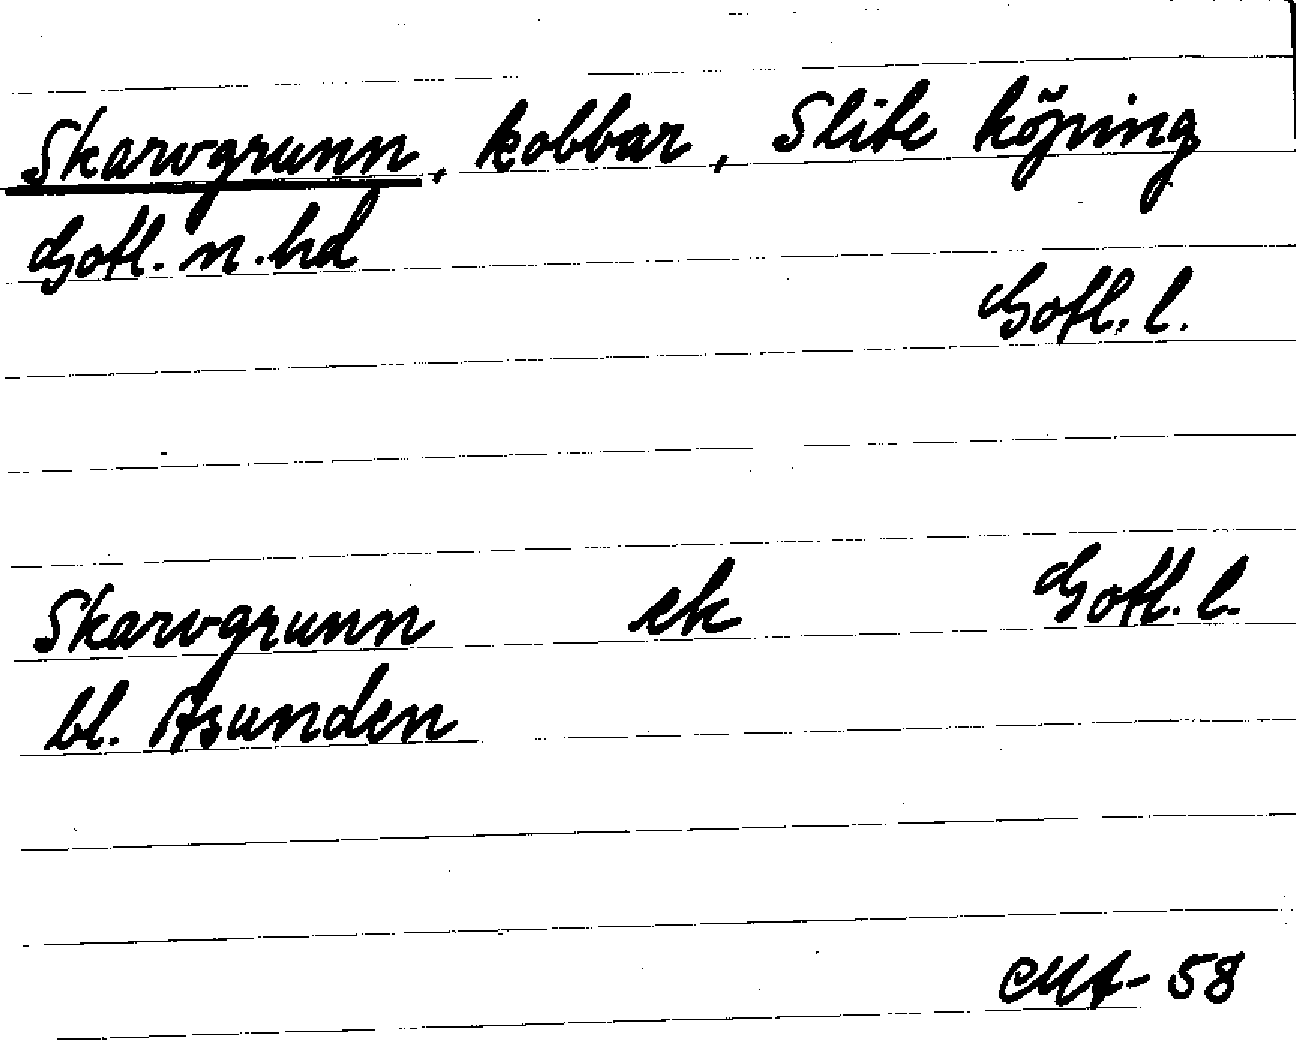 Skarvgrunn, kobbar, Slite köping
Gotl. n. hd
Gotl. l.
Skarvgrunn ek Gotl. l.
bl. Asunden
58